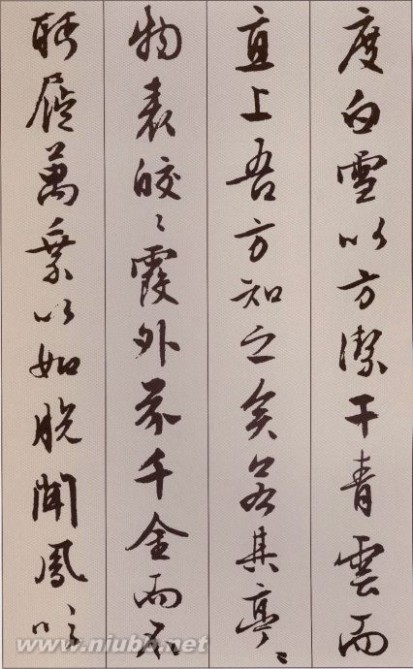 度白雪以方潔干青雲而
直上吾方知之矣若其亭〻
物表皎〻霞外芥千金而不
眄屣萬乘以如脫聞鳳吹
www.niubb.net